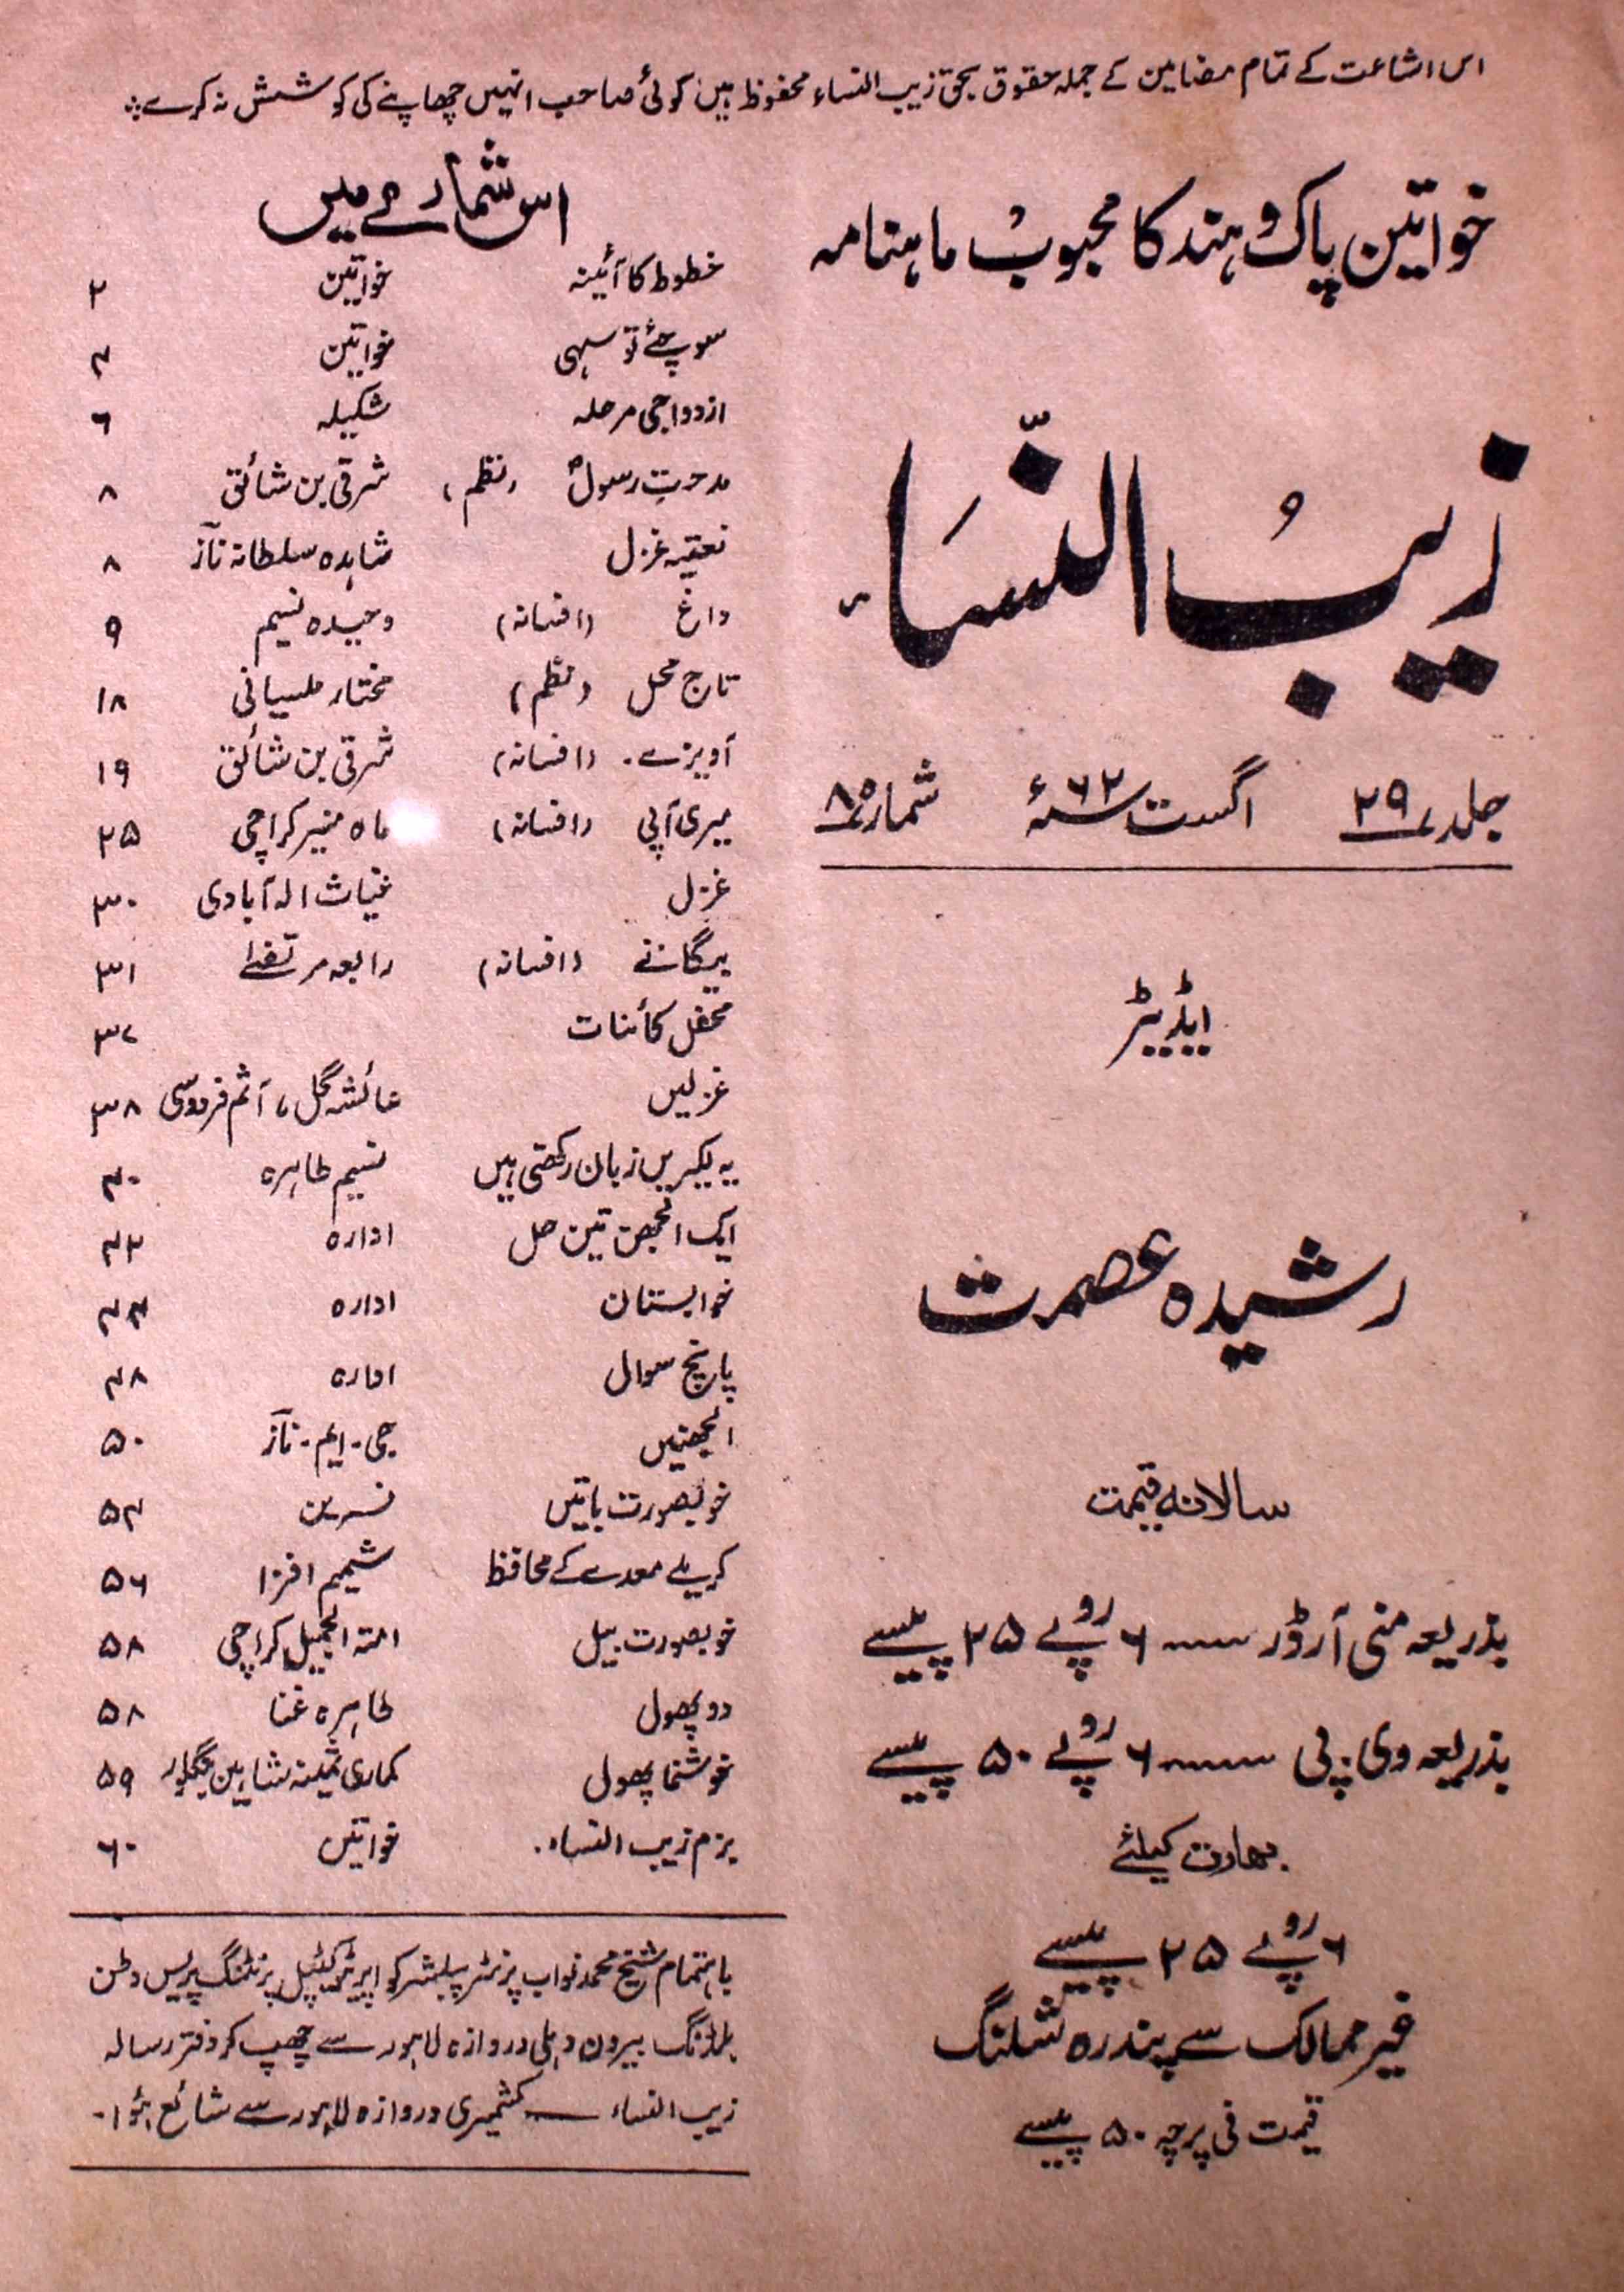 اس اشاعت کے تمام مضامین کے جملہ حقوق بحق زیب النساء محفوظ ہیں کوئی صاحب انہیں چھاپنے کی کوشش نہ کرے
خواتین پاک و ہند کا محبوب ماہنامہ
زیب النساء
جلد ۲۹ اگست ۶۲ء شمارہ ۸
ایڈیٹر
رشیدہ عصمت
سالانہ قیمت
بذریعہ منی آرڈر ۶ روپے ۲۵ پیسے
بذریعہ وی۔پی ۶ روپے ۵۰ پیسے
بھارت کیلئے
۶ روپے ۲۵ پیسے
غیر ممالک سے پندرہ شلنگ
قیمت فی پرچہ ۵۰ پیسے
اس شمارے میں
خطوط کا آئینہ خواتین ۲
سوچئے تو سہی خواتین ۴
ازدواجی مرحلہ شکیلہ ۶
مدحتِ رسولؐ (نظم) شرقی بن شائق ۸
نعتیہ غزل شاہدہ سلطانہ نآز ۸
داغ (افسانہ) وحیدہ نسیم ۹
تاج محل (نظم) مختار ملسیانی ۱۸
آویزے (افسانہ) شرقی بن شائق ۱۹
میری آپی (افسانہ) ماہ منیر کراچی ۲۵
غزل غیاث الہ آبادی ۳۰
بیگانے (افسانہ) رابعہ مرتضےٰ ۳۱
محفل کائنات ۳۷
غزلیں عائشہ گل، آثم فردوسی ۳۸
یہ لکیریں زبان رکھتی ہیں نسیم طاہرہ ۴۰
ایک الجھن تین حل ادارہ ۴۲
خوابستان ادارہ ۴۴
پانچ سوال ادارہ ۴۸
الجھنیں جی۔ ایم۔ نآز ۵۰
خوبصورت باتیں نسرین ۵۴
کریلے معدے کے محافظ شمیم افزا ۵۶
خوبصورت بیل امتہ الجمیل کراچی ۵۸
دو پھول طاہرہ غنا ۵۸
خوشنما پھول کماری ثمینہ شاہین بنگلور ۵۹
بزم زیب النساء۔ خواتین ۶۰
باہتمام شیخ محمد نواب پرنٹر پبلشر کو اپریٹو کیپٹل پرنٹنگ پریس وطن
بلڈنگ بیرون دہلی دروازہ لاہور سے چھپ کر دفتر رسالہ
زیب النساء — کشمیری دروازہ لاہور سے شائع ہؤا۔